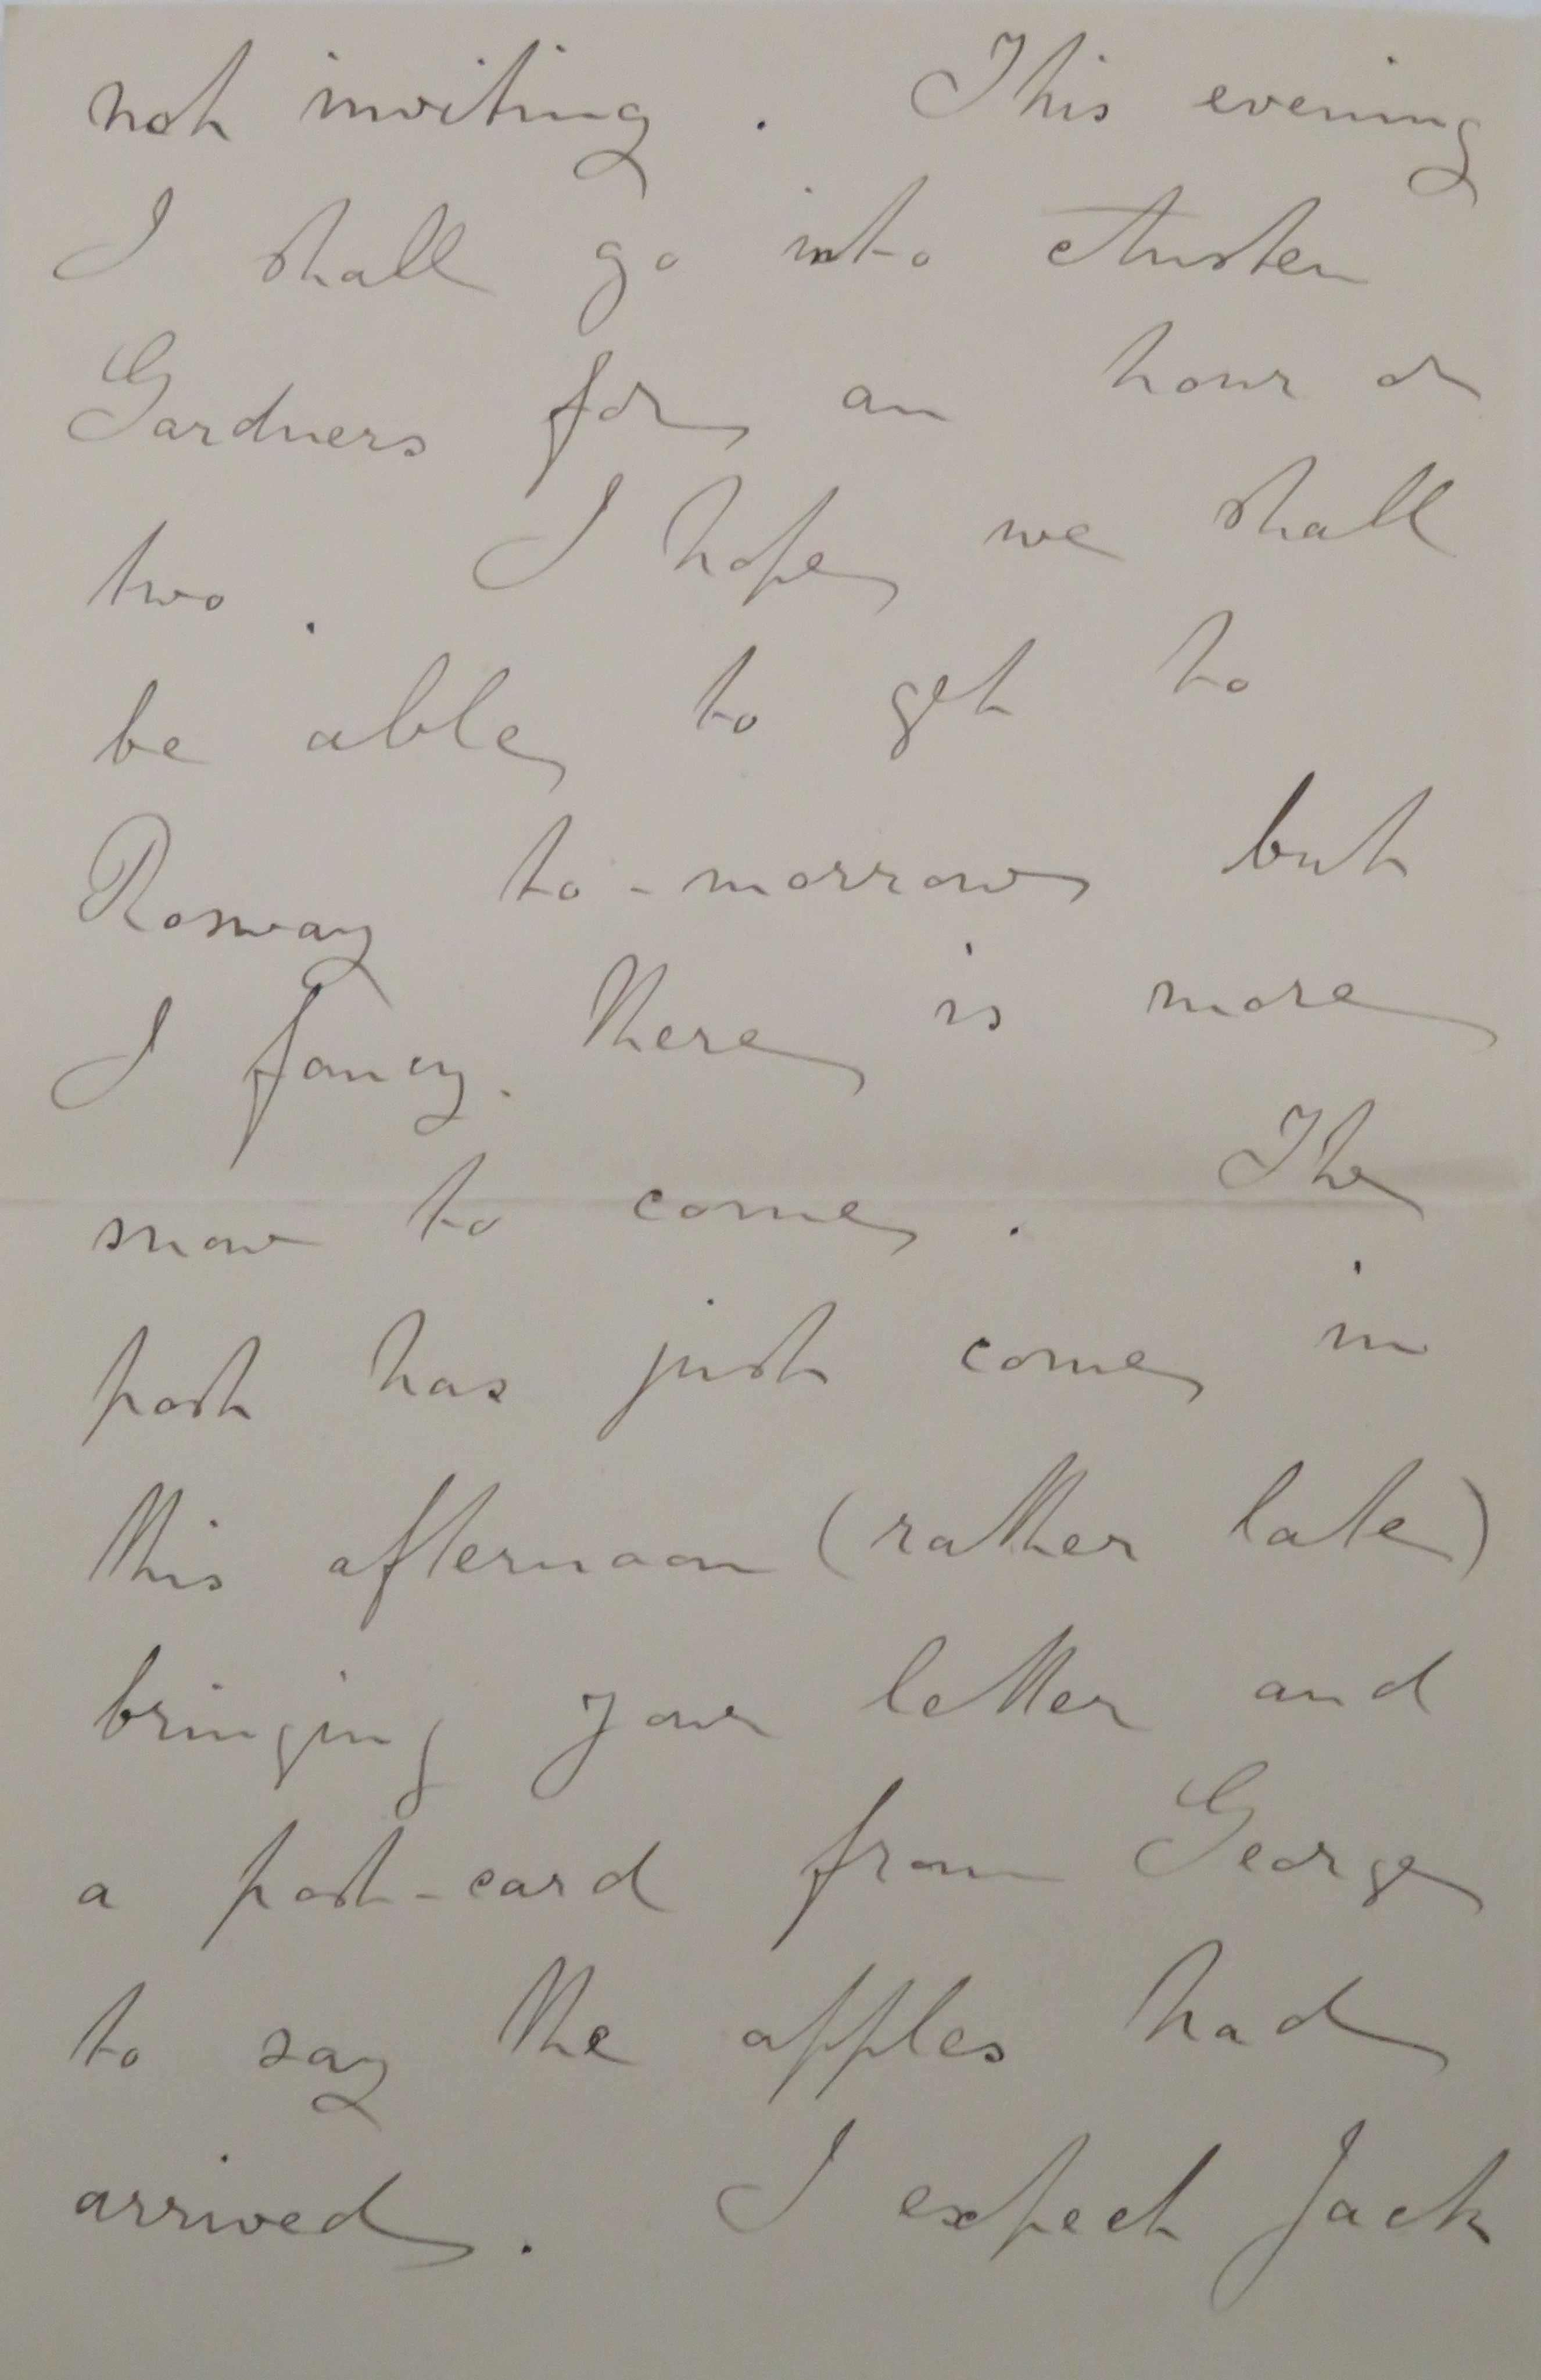 not inviting. This evening
I shall go into Austen
Gardners for an hour or
two. I hope we shall
be able to get to
Rosway to-morrow but
I fancy. there is more
snow to come. The
post has just come in
this afternoon (rather late)
bringing your letter and
a post-card from George
to say the apples had
arrived. I expect Jack